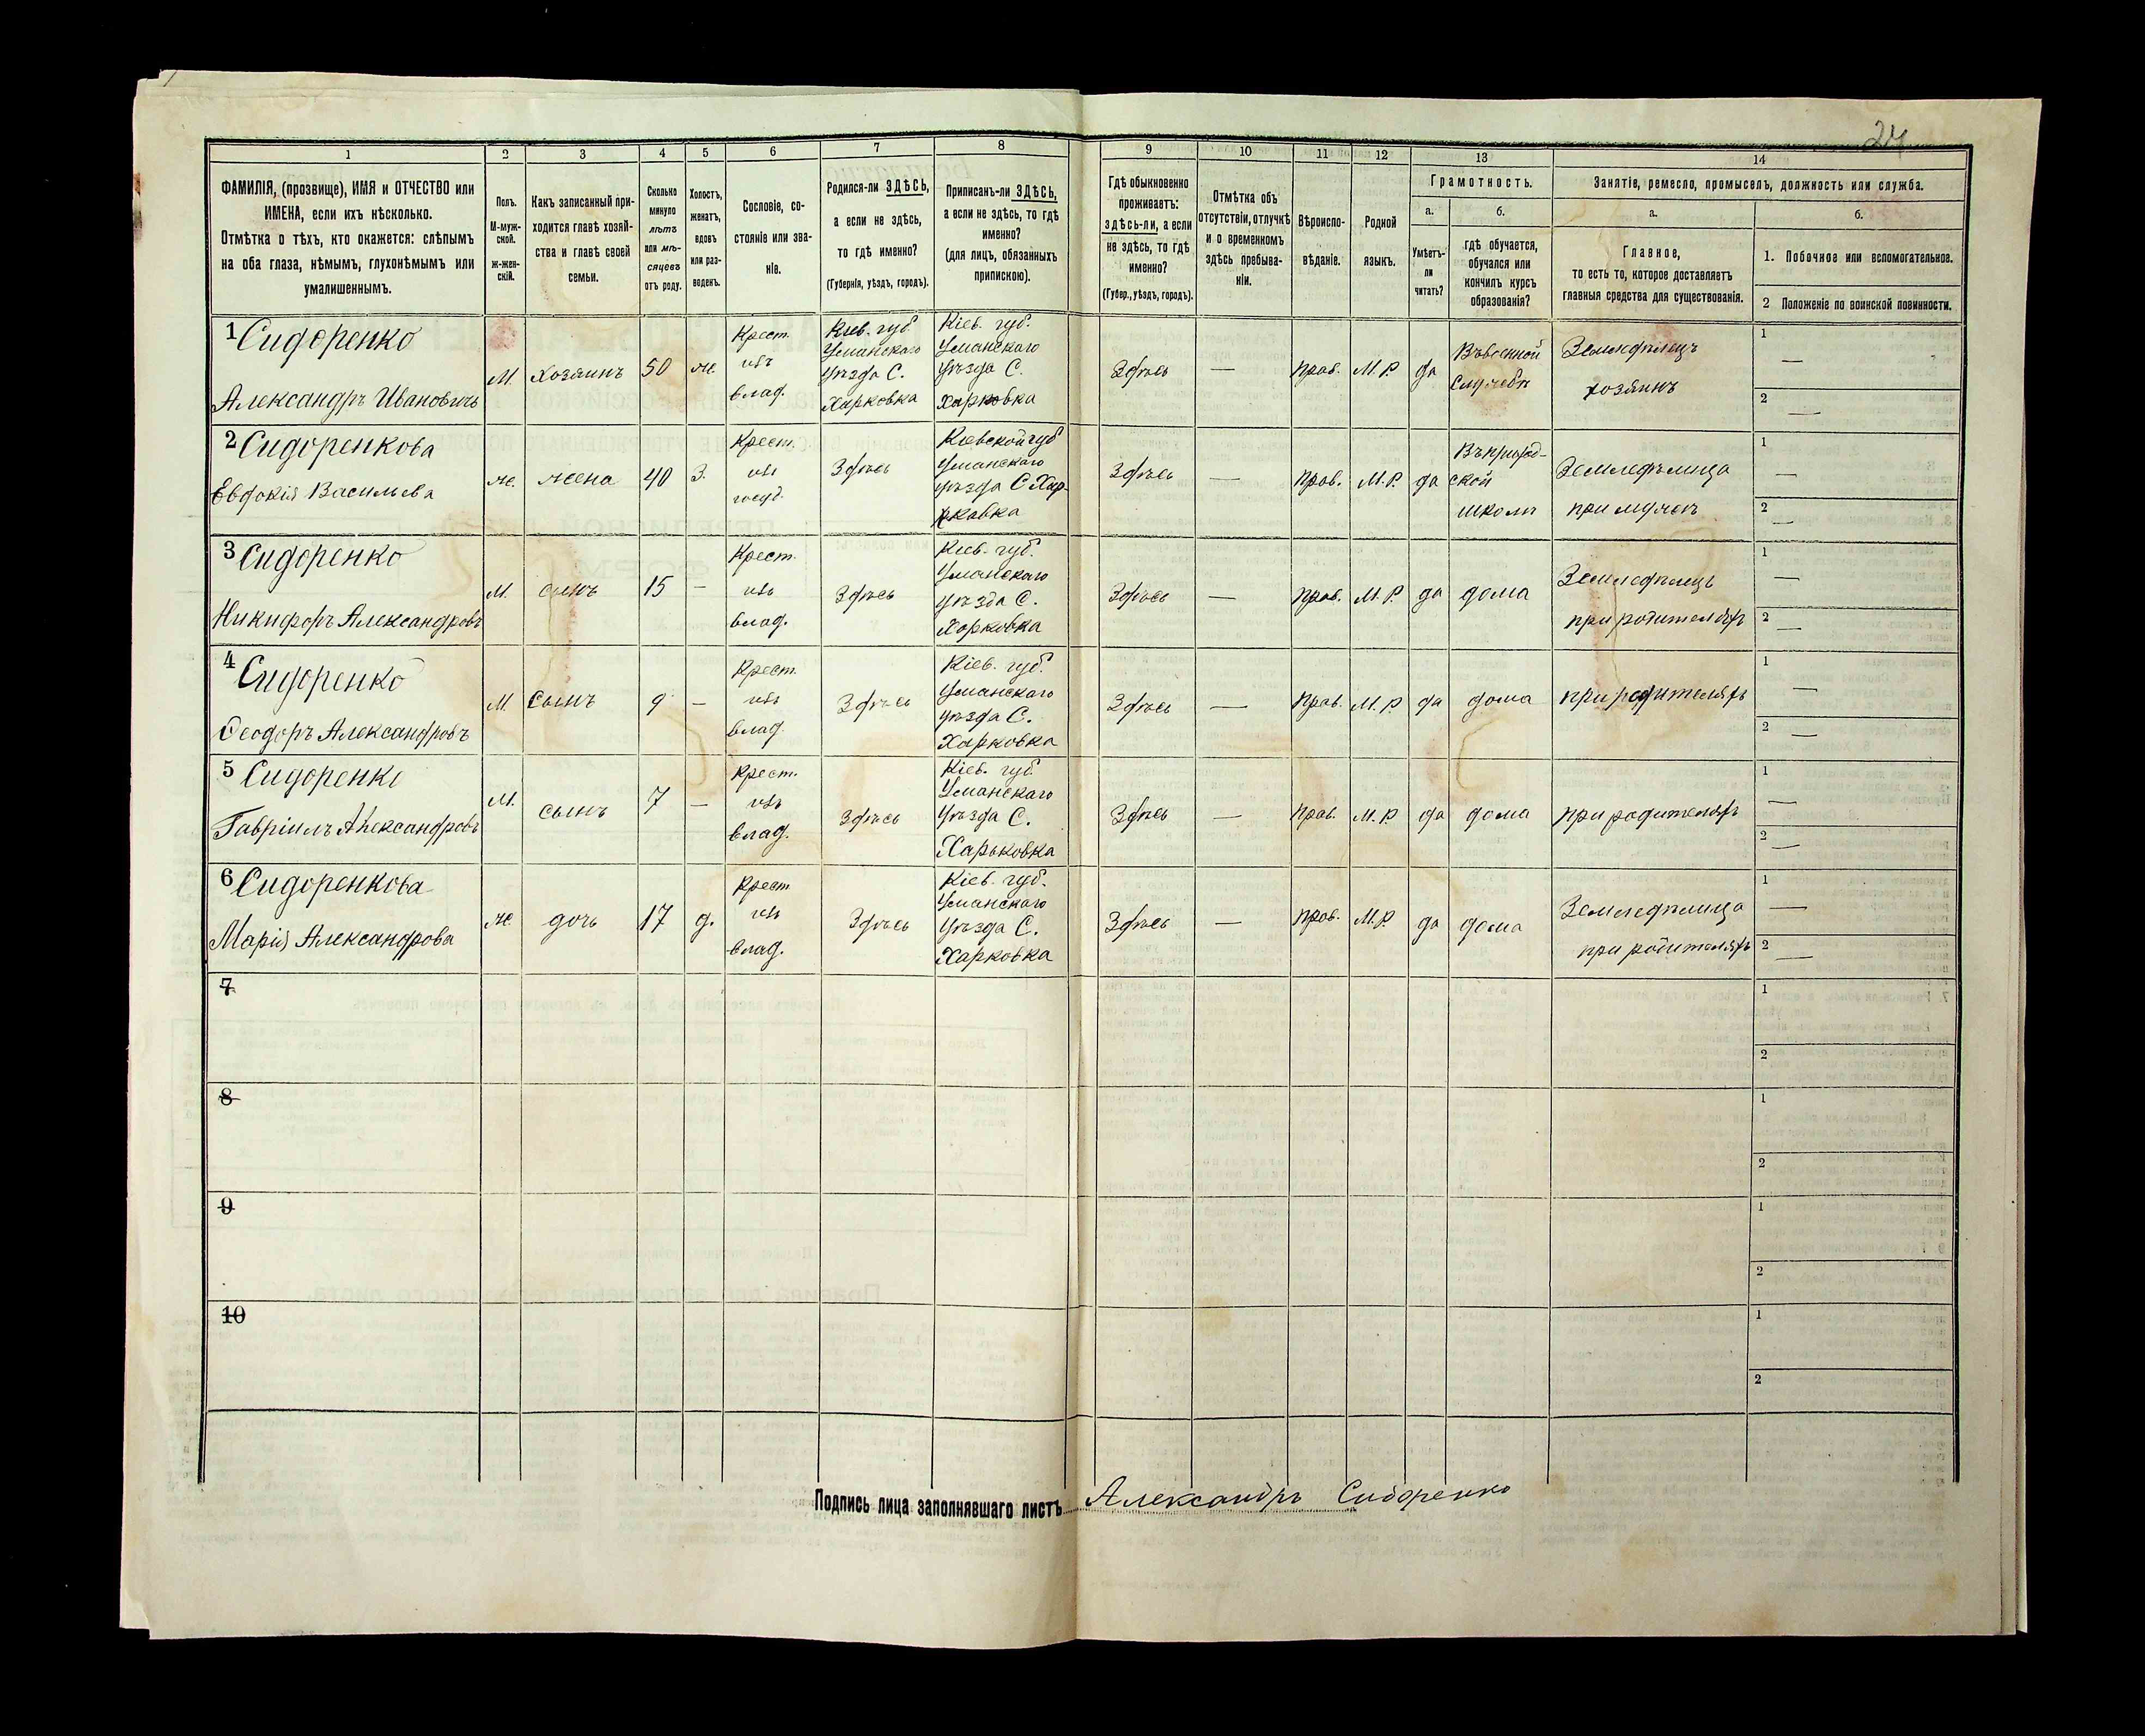 24
1 2 3 4 5 6 7 8 9 10 11 12 13 14
ФАМИЛІЯ, (прозвище), ИМЯ и ОТЧЕСТВО или
ИМЕНА, если ихъ нѣсколько.
Отмѣтка о тѣхъ, кто окажется: слѣпымъ
на оба глаза, нѣмымъ, глухонѣмымъ или
умалишеннымъ.
Полъ.
М-муж-
ской.
ж-жен-
скій.
Какъ записанный при-
ходится главѣ хозяй-
ства и главѣ своей
семьи.
Сколько
минуло
лѣтъ
или мѣ-
сяцевъ
отъ роду.
Холостъ,
женатъ,
вдовъ
или раз-
веденъ.
Сословіе, со-
стояніе или зва-
ніе.
Родился-ли ЗДѢСЬ,
а если не здѣсь,
то гдѣ именно?
(Губернія, уѣздъ, городъ).
Приписанъ-ли ЗДѢСЬ,
а если не здѣсь, то гдѣ
именно?
(для лицъ, обязанныхъ
припискою).
Гдѣ обыкновенно
проживаетъ:
здѣсь-ли, а если
не здѣсь, то гдѣ
именно?
(Губер., уѣздъ, городъ).
Отмѣтка объ
отсутствіи, отлучкѣ
и о временномъ
здѣсь пребыва-
ніи.
Вѣроиспо-
вѣданіе.
Родной
языкъ.
Грамотность.
а.
Умѣетъ-
ли
читать?
б.
гдѣ обучается,
обучался или
кончилъ курсъ
образованія?
Занятіе, ремесло, промыселъ, должность или служба.
а.
Главное,
то есть то, которое доставляетъ
главныя средства для существованія.
б.
1. Побочное или вспомогательное.
2 Положеніе по воинской повинности.
1 Сидоренко
Александръ Ивановичъ
М. хозяинъ 50 ж.
Крест.
изъ
влад.
Кіев. губ
Уманскаго
уѣзда С.
Харковка
Кіев. губ.
Уманскаго
уѣзда С.
Харковка
Здѣсь — прав. М. Р. да
Въ военной
службѣ
Земледѣлецъ
хозяинъ
1 —
2 —
2 Сидоренкова
Евдокія Васильева
ж. жена 40 З.
Крест.
изъ
госуд.
Здѣсь
Кіевской губ
Уманскаго
уѣзда С Хар-
ковка
Здѣсь — прав. М. Р. да
школѣ
Земледѣлица
при мужѣ
1 —
2 —
3 Сидоренко
Никифоръ Александровъ
М. сынъ 15 —
Крест.
изъ
влад.
Здѣсь
Кіев. губ.
Уманскаго
уѣзда С.
Харковка
Здѣсь — прав. М. Р. да дома
Земледѣлецъ
при родителяхъ
1 —
2 —
4 Сидоренко
Ѳеодоръ Александровъ
М. сынъ 9 —
Крест.
изъ
влад.
Здѣсь
Кіев. губ.
Уманскаго
уѣзда С.
Харковка
Здѣсь — прав. М. Р. да дома при родителяхъ
1 —
2 —
5 Сидоренко
Гавріилъ Александровъ
М. сынъ 7 —
Крест.
изъ
влад.
Здѣсь
Кіев. губ.
Уманскаго
уѣзда С.
Харьковка
Здѣсь — прав. М. Р. да дома при родителяхъ
1 —
2 —
6 Сидоренкова
Марія Александрова
ж. дочь 17 д.
Крест
изъ
влад.
Здѣсь
Кіев. губ.
Уманскаго
уѣзда С.
Харковка
Здѣсь — прав. М. Р. да дома
Земледѣлица
при родителяхъ
1 —
2 —
7
1
2
8
1
2
9
1
2
10
1
2
Подпись лица заполнявшаго листъ Александръ Сидоренко